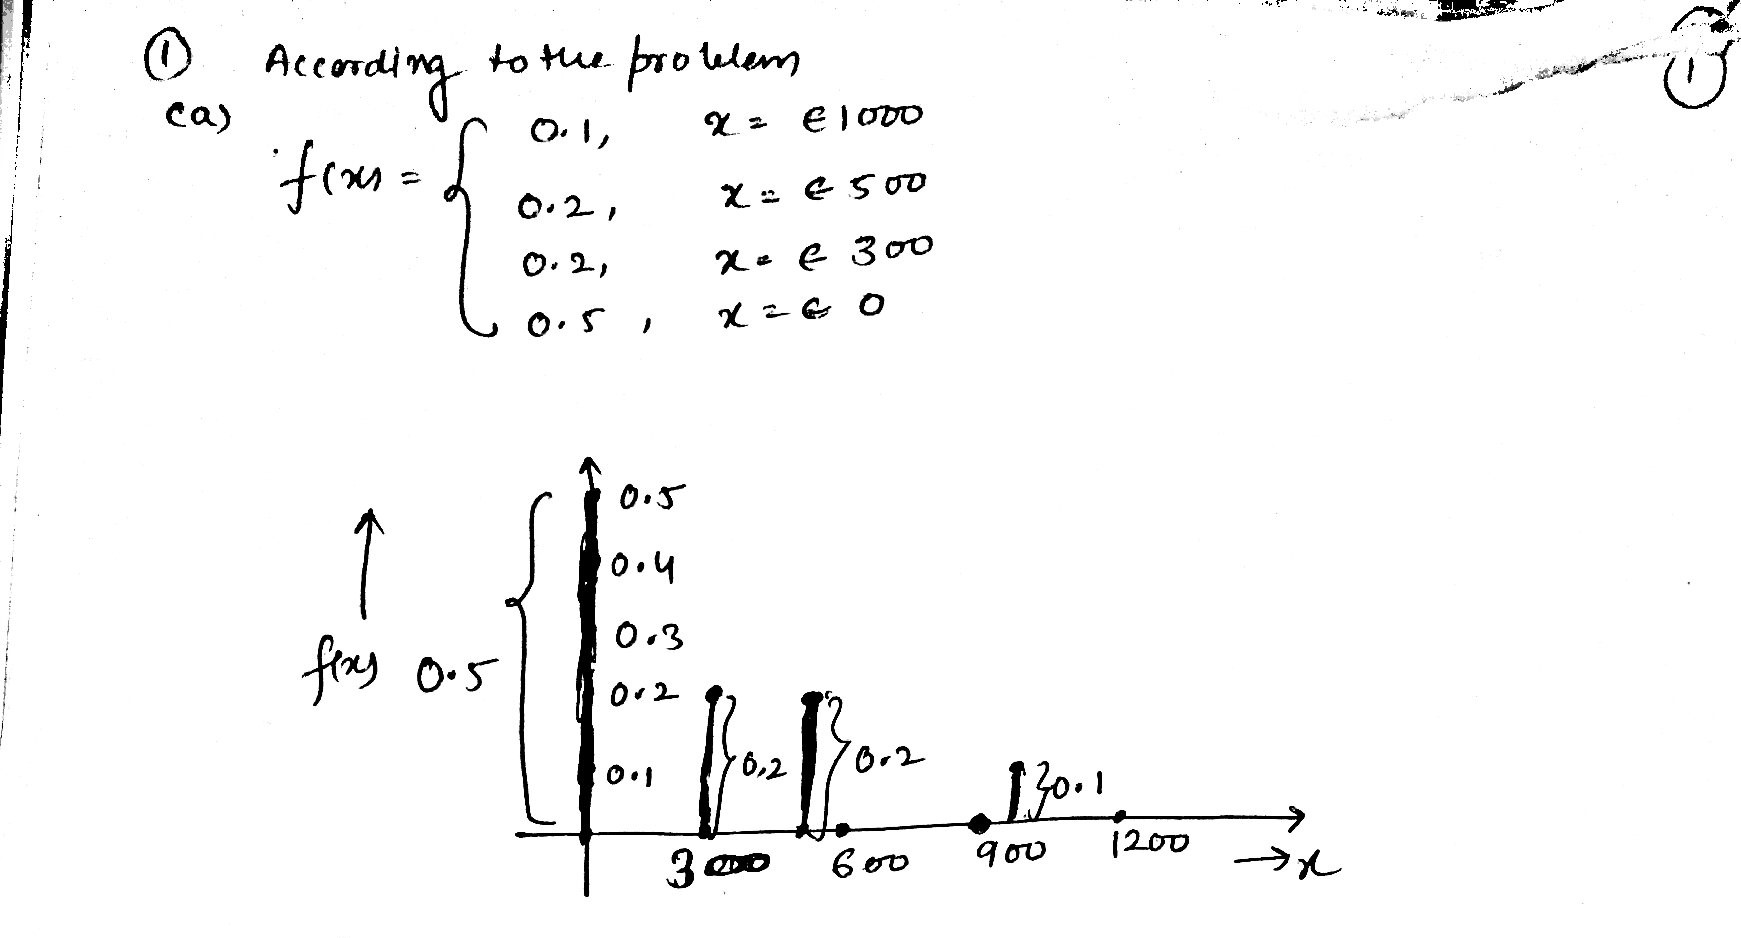 ① According to the problem ①
(a)
f(x) = { 0.1, x = €1000
0.2, x = € 500
0.2, x = € 300
0.5, x = € 0
0.5
0.4
0.3
f(x) 0.5 0.2
0.1 0.2 0.2 0.1
300 600 900 1200 → x